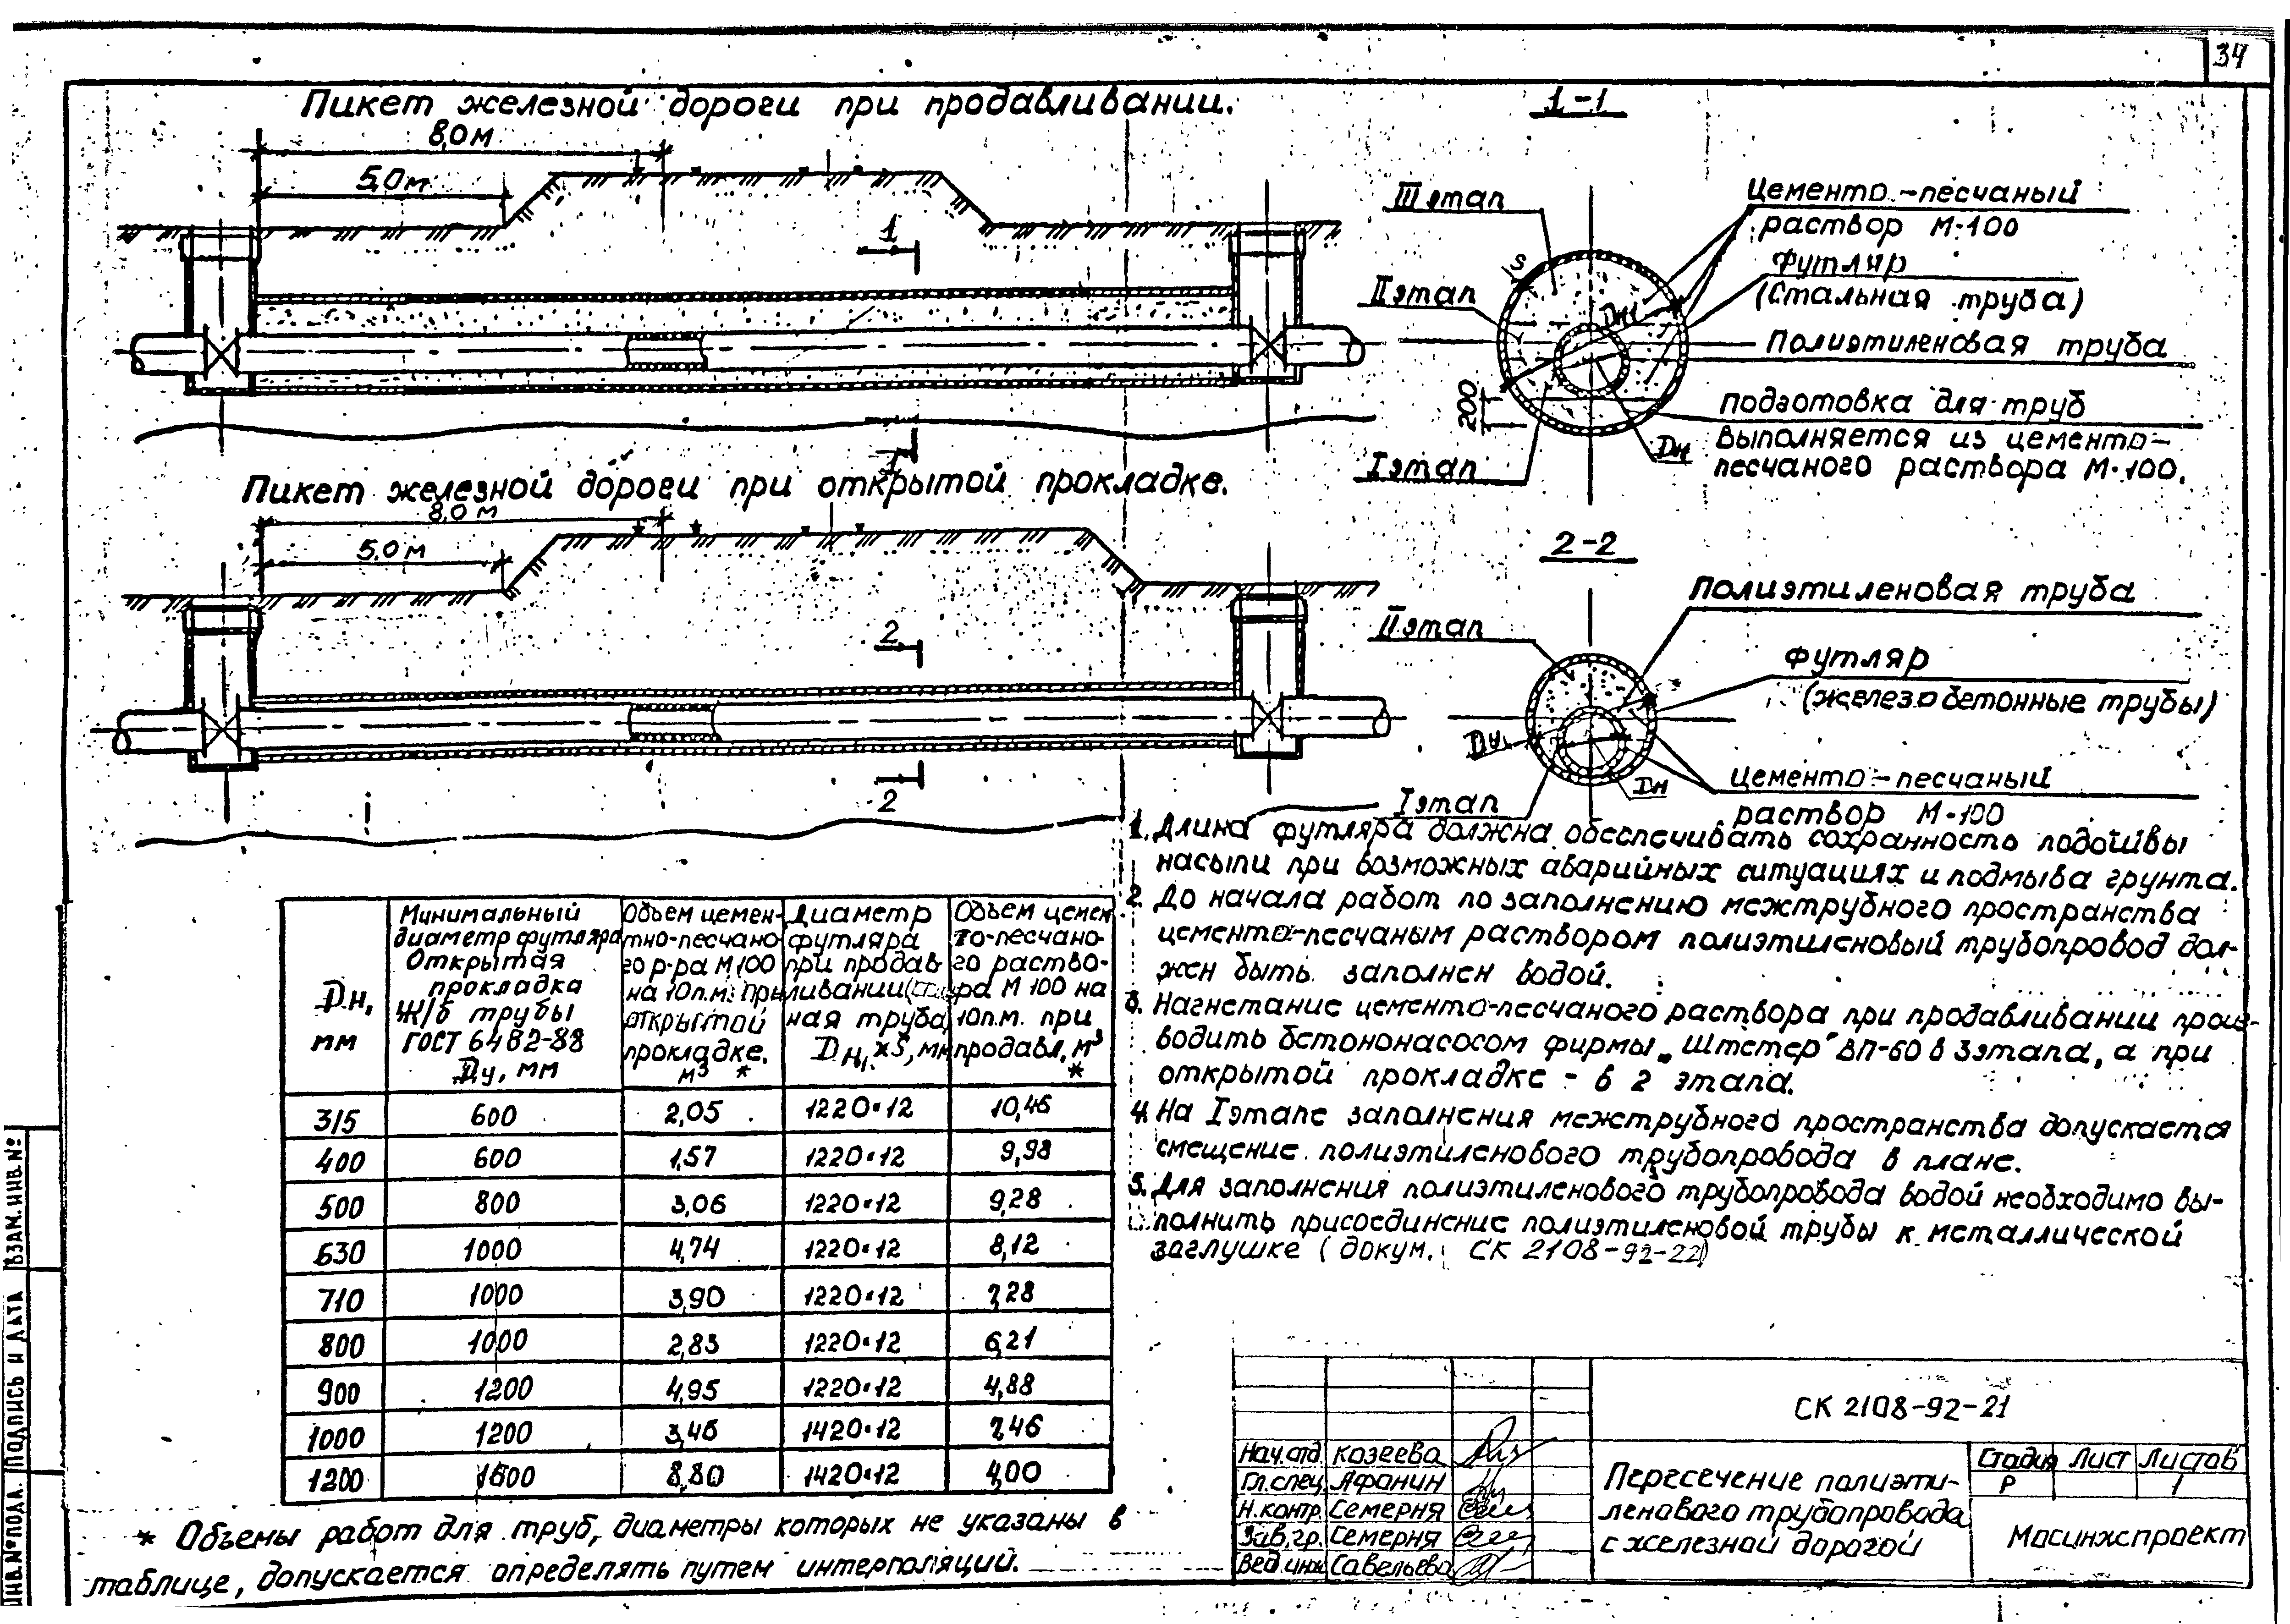 34
Пикет железной дороги при продавливании.
8,0м
5,0м
1
1
1-1
III этап
II этап
I этап
S
Dн1
200
Dн
Цементо-песчаный
раствор М-100
Футляр
(Стальная труба)
Полиэтиленовая труба
подготовка для труб
выполняется из цементо-
песчаного раствора М-100.
Пикет железной дороги при открытой прокладке.
8,0 м
5,0 м
2
2
2-2
II этап
I этап
Dн1
Dн
Полиэтиленовая труба
Футляр
(железобетонные трубы)
Цементо-песчаный
раствор М-100
1. Длина футляра должна обеспечивать сохранность подошвы
насыпи при возможных аварийных ситуациях и подмыва грунта.
2. До начала работ по заполнению межтрубного пространства
цементо-песчаным раствором полиэтиленовый трубопровод дол-
жен быть заполнен водой.
3. Нагнетание цементо-песчаного раствора при продавливании произ-
водить бетононасосом фирмы „Штетер" ВП-60 в 3 этапа, а при
открытой прокладке - в 2 этапа.
4. На I этапе заполнения межтрубного пространства допускается
смещение полиэтиленового трубопровода в плане.
5. Для заполнения полиэтиленового трубопровода водой необходимо вы-
полнить присоединение полиэтиленовой трубы к металлической
заглушке (докум. СК 2108-92-22)
Dн,
мм
Минимальный
диаметр футляра
Открытая
прокладка
Ж/б трубы
ГОСТ 6482-88
Dу, мм
Объем цемен-
тно-песчано
го р-ра М 100
на 10п.м. при
открытой
прокладке.
м³ *
Диаметр
футляра
при продав
ливании
ная труба
Dн1 x S, мм
Объем цемен
то-песчано-
го раство-
ра М 100 на
10п.м. при
продавл. м³
*
315 600 2,05 1220×12 10,46
400 600 1,57 1220×12 9,98
500 800 3,06 1220×12 9,28
630 1000 4,74 1220×12 8,12
710 1000 3,90 1220×12 7,28
800 1000 2,83 1220×12 6,21
900 1200 4,95 1220×12 4,88
1000 1200 3,46 1420×12 7,46
1200 1600 8,80 1420×12 4,00
* Объемы работ для труб, диаметры которых не указаны в
таблице, допускается определять путем интерполяций.
Нач.отд. Козеева
Гл.спец. Афанин
Н.контр. Семерня
Зав.гр. Семерня
Вед.инж Савельева
СК 2108-92-21
Пересечение полиэти-
ленового трубопровода
с железной дорогой
Стадия Лист Листов
Р 1
Мосинжпроект
Инв.№подл. Подпись и дата Взам.инв.№